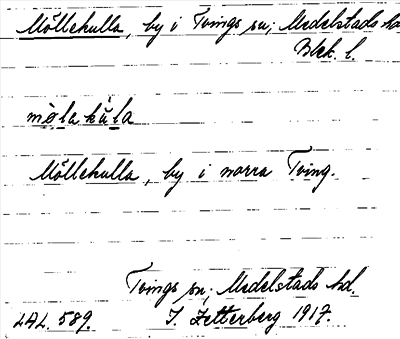 Möllekulla, by i Tvings sn; Medelstads hd
Blek. l.
mø̀lakùla
Möllekulla, by i norra Tving.
Tvings sn; Medelstads hd.
LAL. 589. I. Zetterberg 1917.